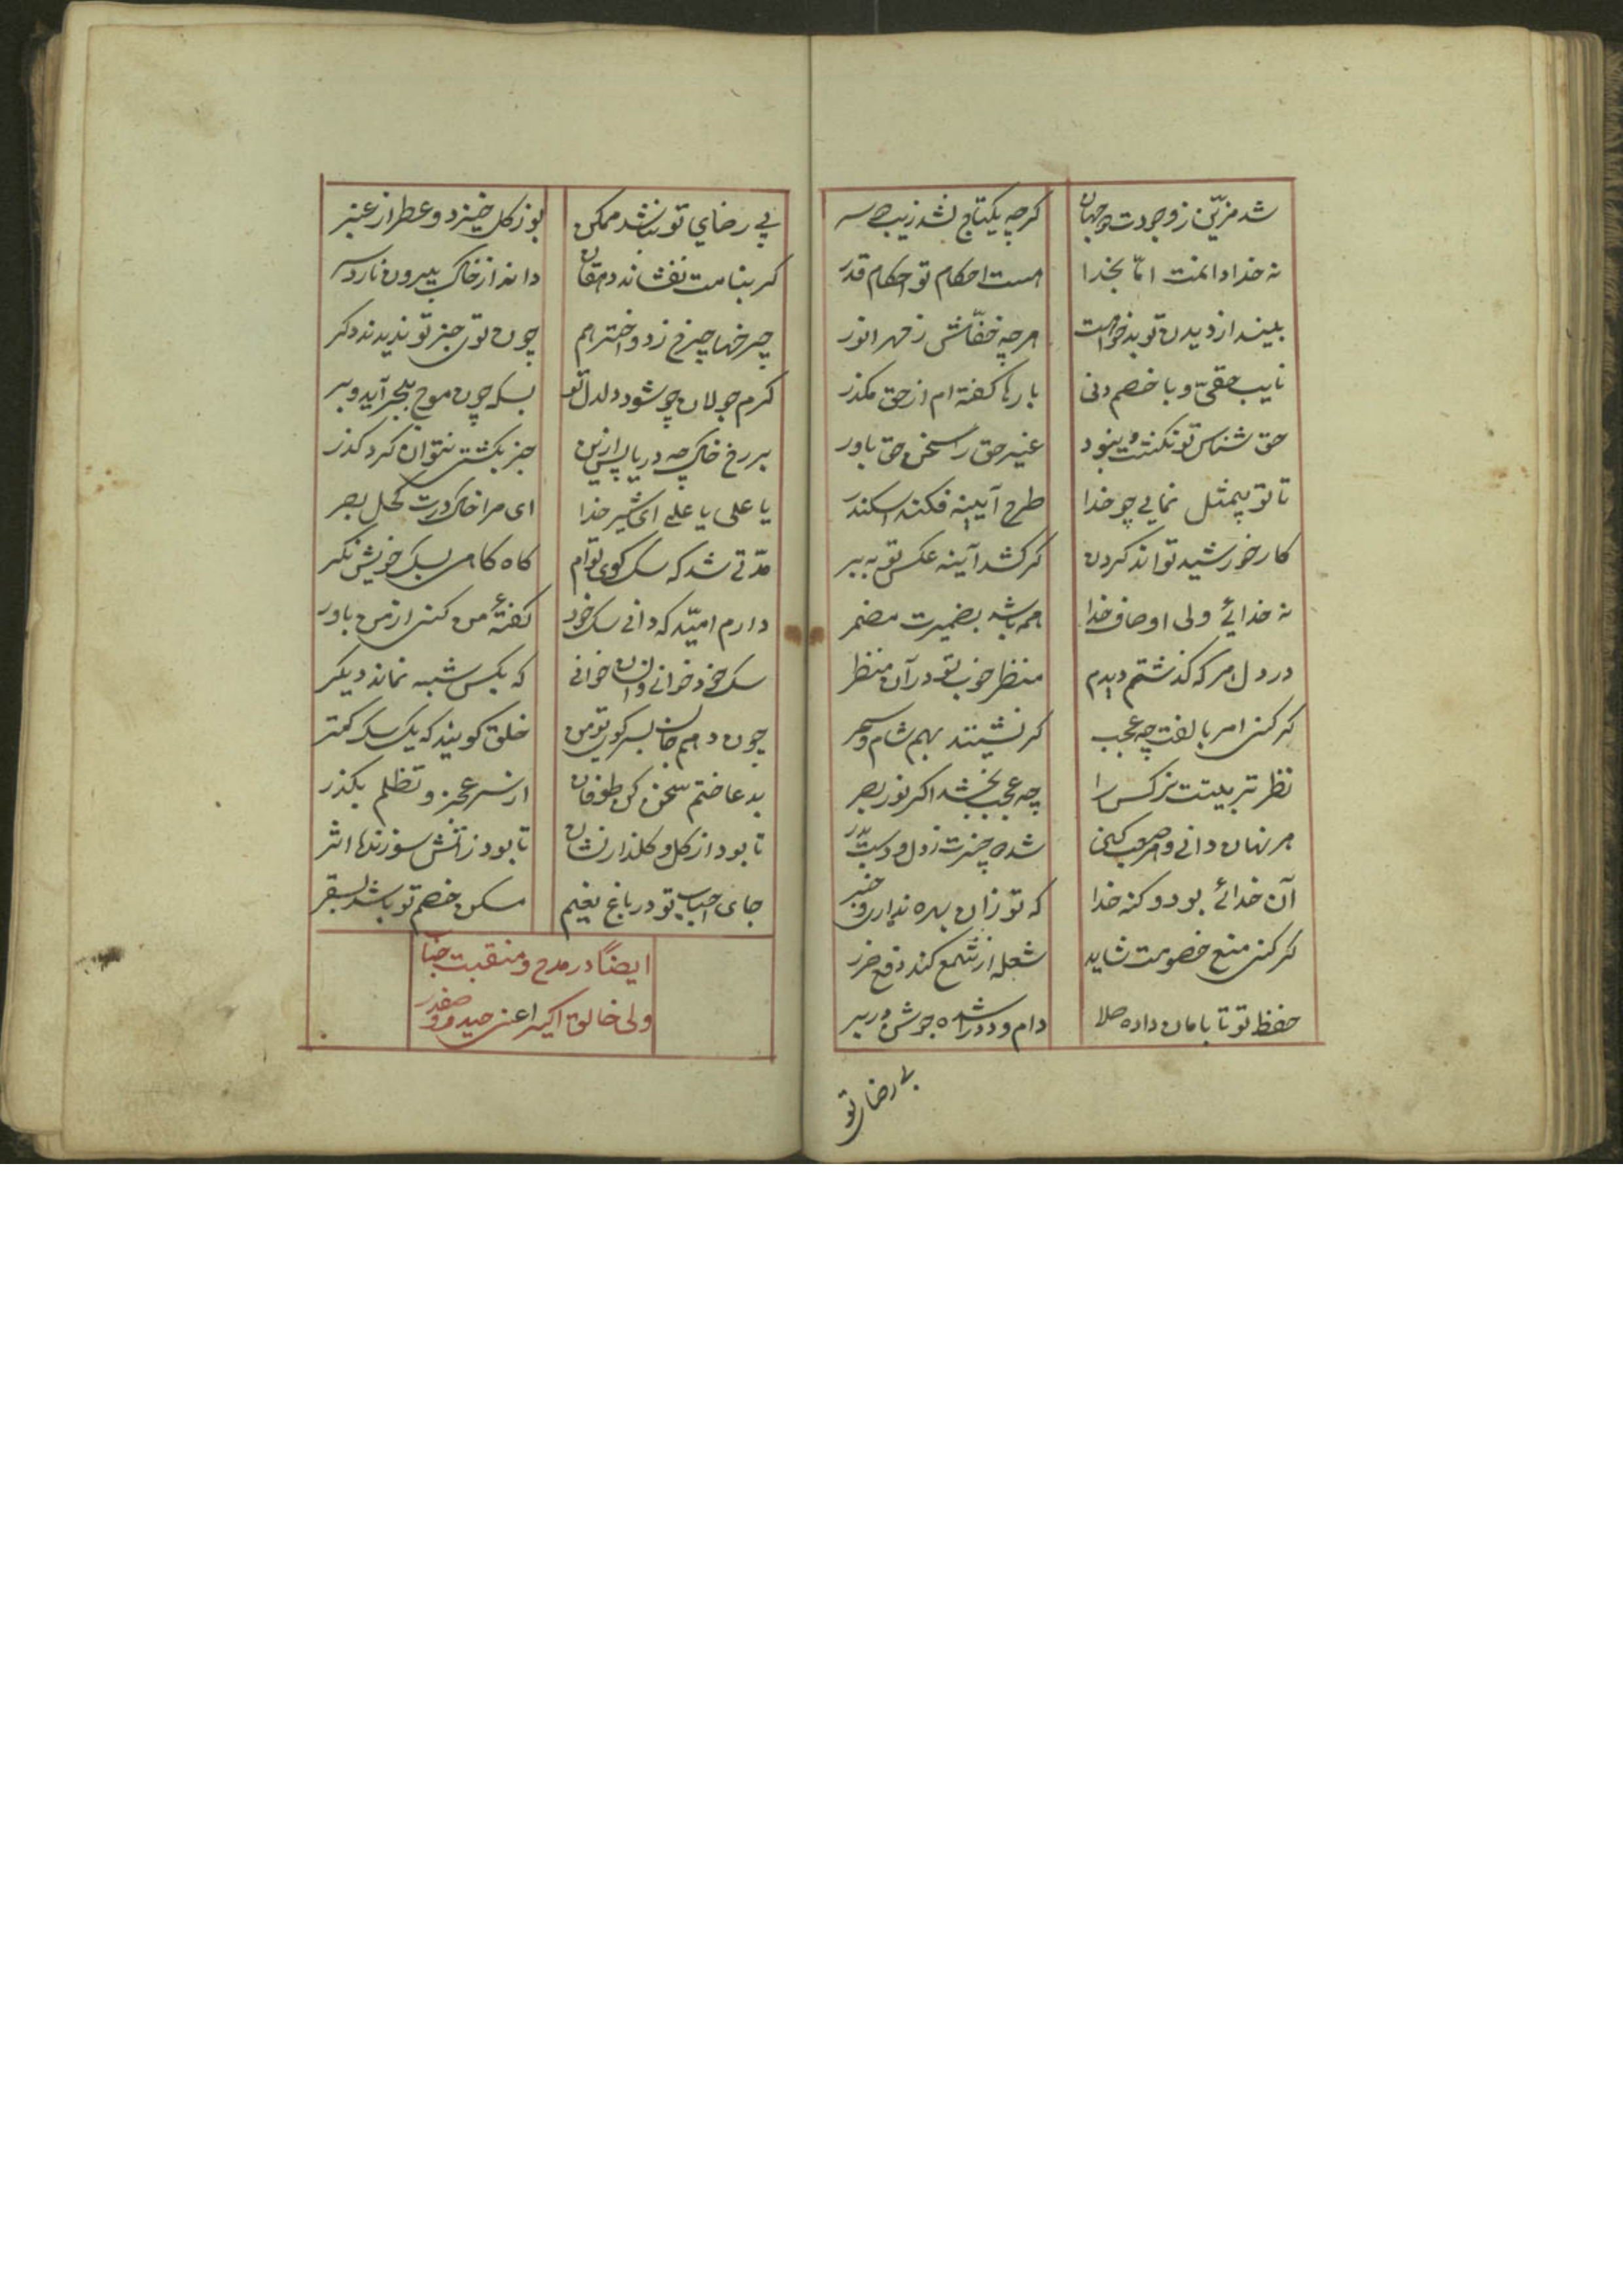 شد مزیّن ز وجودت دو جهان
کرچه یکتاج نشد زیب سر
نه خدا دانمت امّا بخدا
هست احکام تو احکام قدر
بیند از دیدن تو بدخواهت
هر چه خفّاش ز مهر انور
نایب حقی و با خصم دنی
بارها کفته ام از حق مکذر
حق شناس تو نکشت و ننمود
غیر حق را سخن حق باور
تا تو بیمثل نمایی چو خدا
طرح آیینه فکند اسکندر
کار خورشید تواند کردن
کر کشد آینه عکس تو به بر
نه خدائی ولی اوصاف خدا
همه باشد بضمیرت مضمر
در دل هر که کذشتم دیدم
منظر خوب تو در آن منظر
کر کنی امر بالفت چه عجب
کر نشینند بهم شام و سحر
نظر تربیتت نرکس را
چه عجب بخشد اکر نور بصر
هر نهان دانی و هر عیب کنی
شده چیزت ز دل و دست بدر
آن خدائی بود و کنه خدا
که تو زان بهره نداری و خبر
کر کنی منع خصومت شاید
شعله از شمع کند دفع ضرر
حفظ تو تا بامان داده صلا
دام و دد را شده جوشن در بر
بی رضای تو
بی رضای تو نباشد ممکن
بو ز کل خیزد و عطر از عنبر
کر بنامت نفشاند دهقان
دانه از خاک بیرون نارد سر
چرخها چرخ زد و اختر هم
چون توی جز تو ندیدند دکر
کرم جولان چو شود دلدل تو
بسکه چون موج ببحر آید و بر
بر رخ خاک چه دریا پس ازین
جز بکشتی نتوان کرد کذر
یا علی یا علی ای شیر خدا
ای مرا خاک درت کحل بصر
مدّتی شد که سک کوی توام
کاه کاهی بسک خویش نکر
دارم امیّد که دانی سک خود
کفتهٔ من کنی از من باور
سک خود خوانی و انسان خوانی
که بکس شبه نماند دیکر
چون دهم جان بسر کوی تو من
خلق کویند که یک سک کمتر
بدعا ختم سخن کن طوفان
از سر عجز و تظلم بکذر
تا بود از کل و کلذار نشان
تا بود ز آتش سوزنده اثر
جای احباب تو در باغ نعیم
مسکن خصم تو باشد بسقر
ایضاً در مدح و منقبت جناب
ولی خالق اکبر اعنی حیدر صفدر